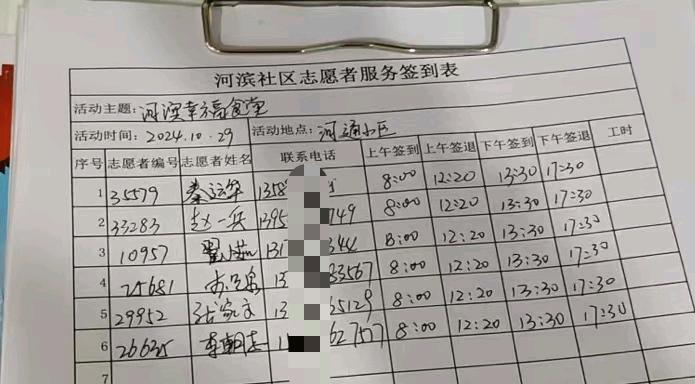 河滨社区志愿者服务签到表
活动主题: 河滨幸福食堂
活动时间: 2024.10.29 活动地点: 河通小区
序号 志愿者编号 志愿者姓名 联系电话 上午签到 上午签退 下午签到 下午签退 工时
1 35579 秦运华 1358 8:00 12:20 13:30 17:30
2 33283 赵一兵 1395 749 8:00 12:20 13:30 17:30
3 10957 131 344 8:00 12:20 13:30 17:30
4 25681 13 83567 8:00 12:20 13:30 17:30
5 29952 张家文 13 65129 8:00 12:20 13:30 17:30
6 26635 李朝志 1 62757 8:00 12:20 13:30 17:30
7